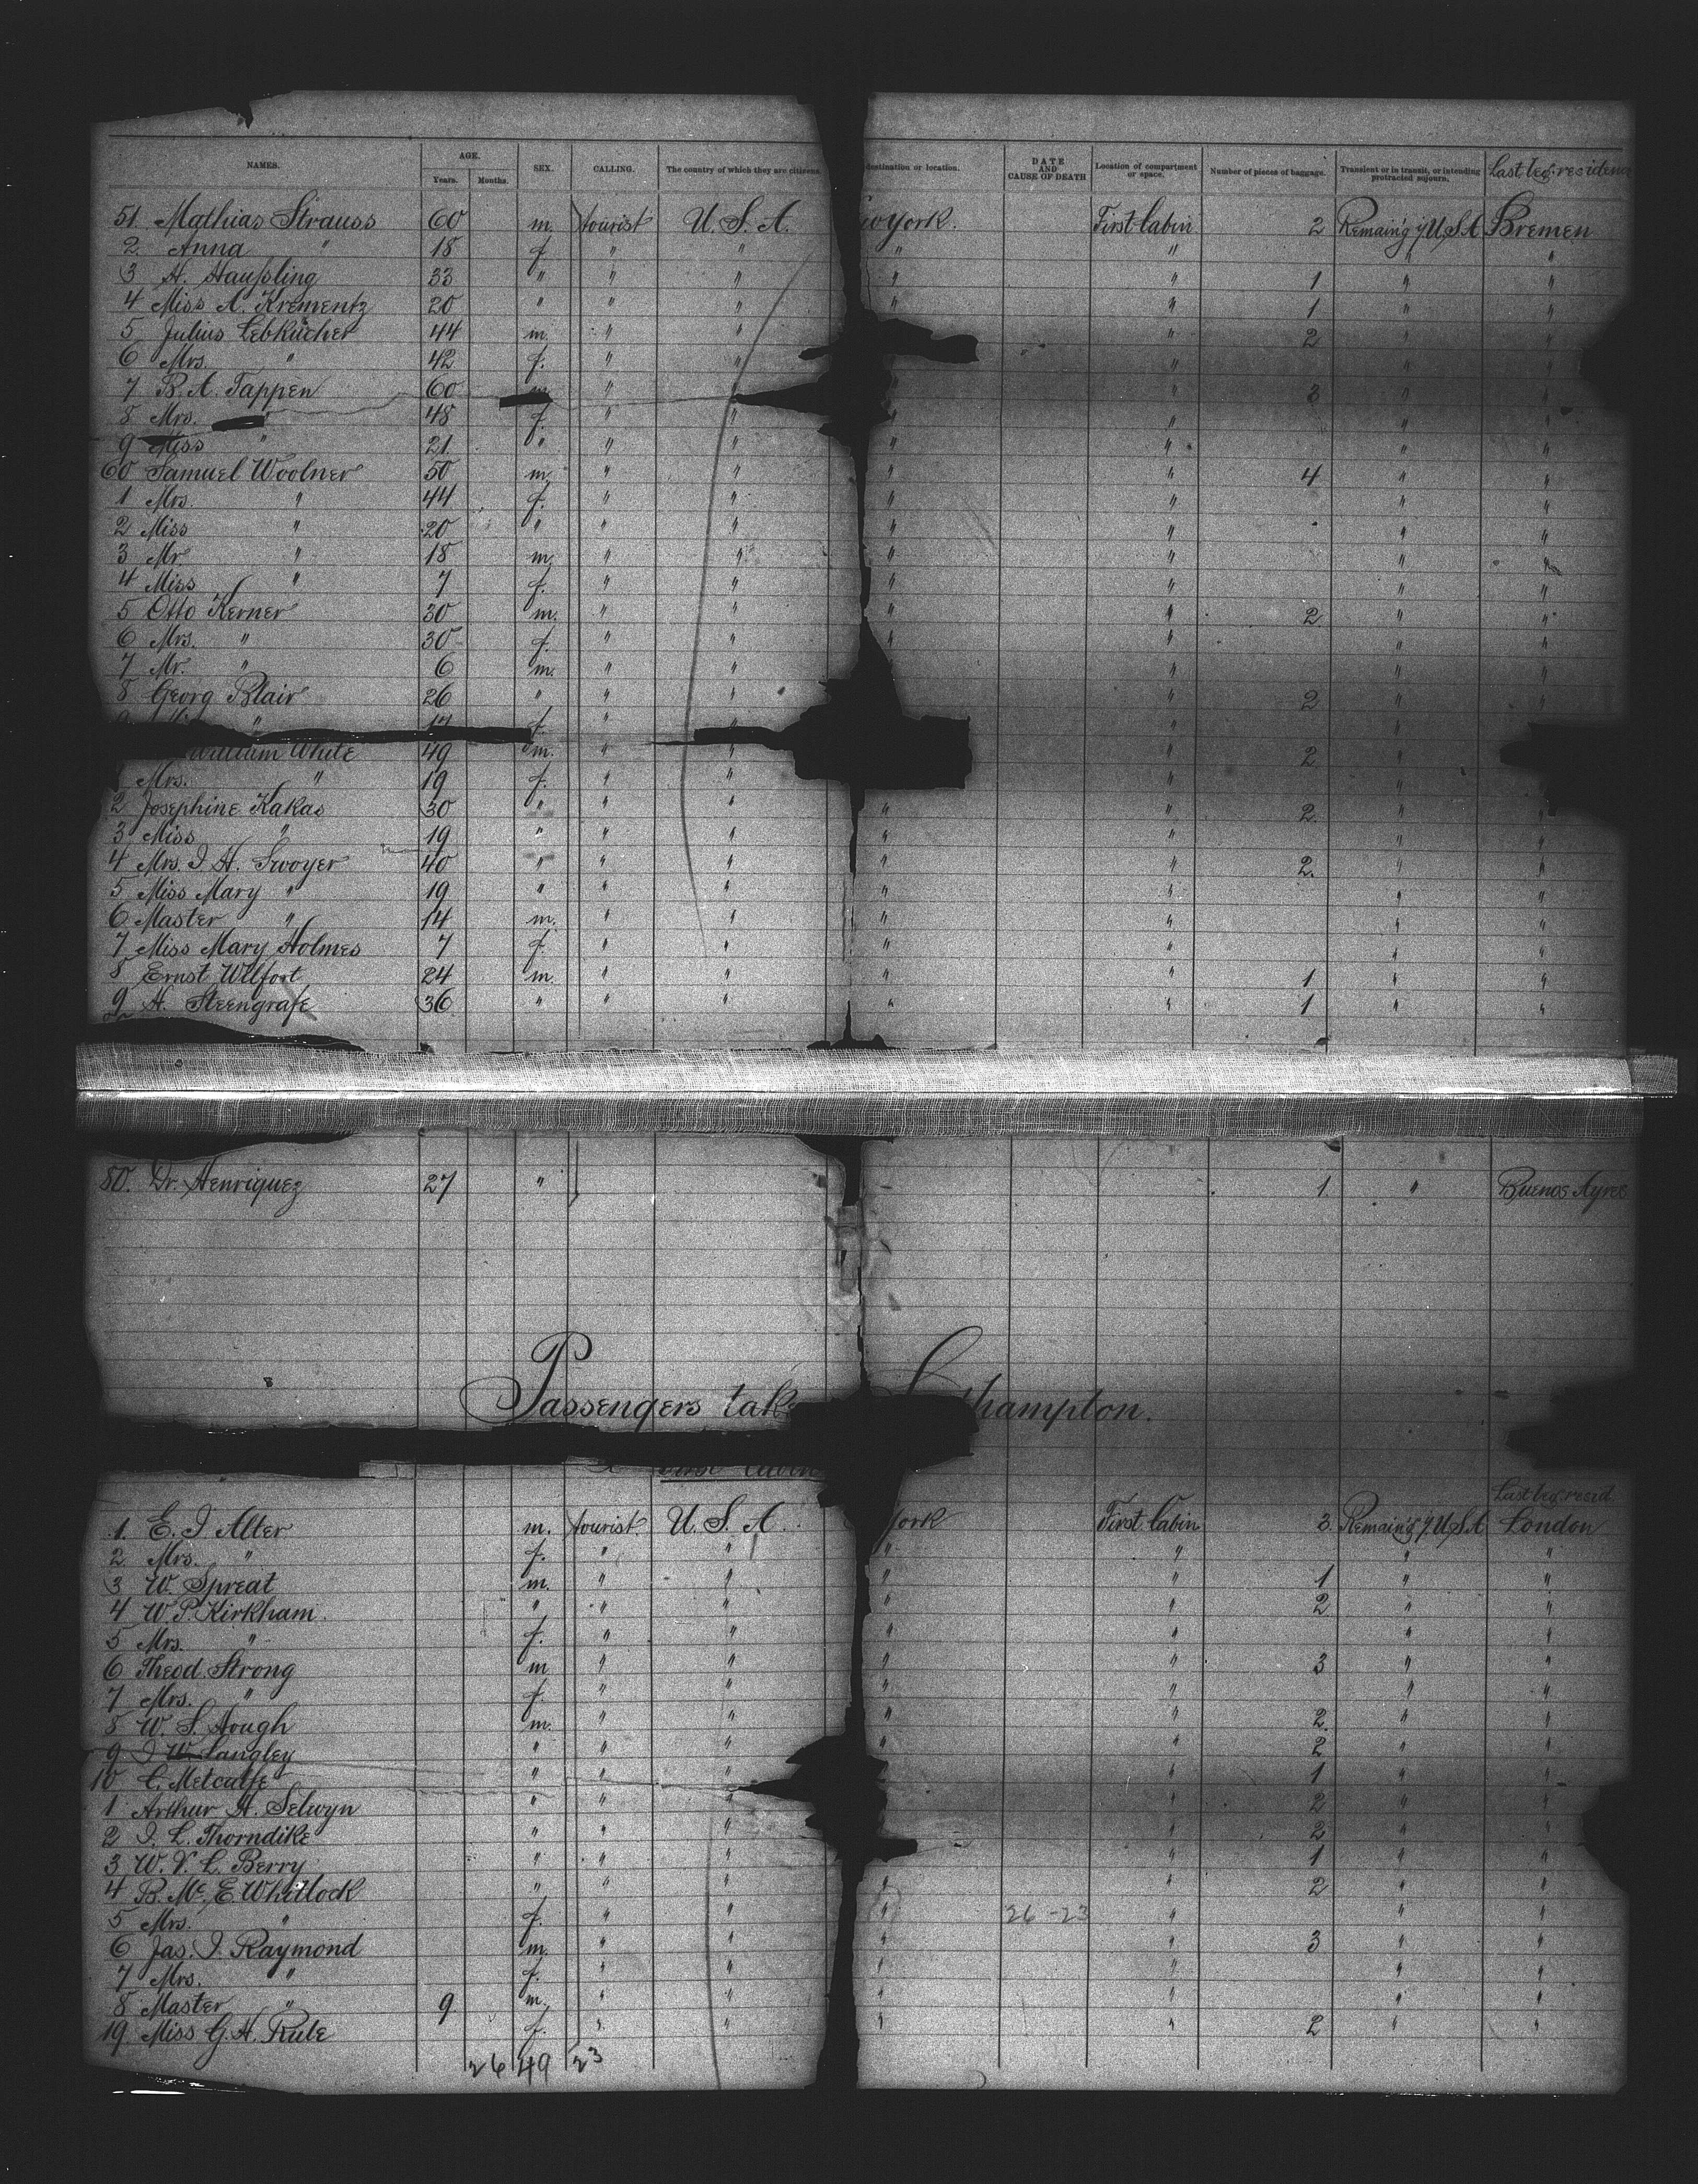 NAMES. AGE. Years. Months. SEX. CALLING. The country of which they are citizens. destination or location. DATE AND CAUSE OF DEATH Location of compartment or space. Number of pieces of baggage. Transient or in transit, or intending protracted sojourn. Last leg. residence
51. Mathias Strauss 60 m. tourist U.S.A. ew York. First Cabin 2 Remain'g i/ U.S.A. Bremen
2. Anna " 18 f. " " " " " "
3 H. Haußling 33 " " " " " 1 " "
4 Miss A. Krementz 20 " " " " " 1 " "
5 Julius Lebkücher 44 m. " " " 2 " "
6 Mrs. " 42 f. " " " " "
7 B. A. Tappen 60 m. " " " " 3 " "
8 Mrs. " 48 f. " " " " "
9 Miss " 21. " " " " " " "
60 Samuel Woolner 50 m. " " " " 4 " "
1 Mrs. " 44 f. " " " " " "
2 Miss " 20 " " " " " " "
3 Mr. " 18 m. " " " " " "
4 Miss " 7 f. " " " " " "
5 Otto Kerner 30 m. " " " " 2. " "
6 Mrs. " 30 f. " " " " " "
7 Mr. " 6 m. " " " " " "
8 Georg Blair 26 " " " " 2 " "
" f. " " " "
William White 49 m. " " " 2 "
Mrs. " 19 f. " " " "
2 Josephine Kakas 30 " " " " " 2. " "
3 Miss " 19 " " " " " " "
4 Mrs. J. H. Swoyer 40 " " " " " 2. " "
5 Miss Mary " 19 " " " " " " "
6 Master " 14 m. " " " " " "
7 Miss Mary Holmes 7 f. " " " " " "
8 Ernst Wilfort 24 m. " " " " 1 " "
9 H. Steengrafe 36 " " " " " 1 " "
80. Dr. Henriquez 27 " 1 " Buenos Ayres
Passengers take hampton.
First Cabin
Last leg. resid.
1. E. J. Alter m. tourist U.S.A. York First Cabin 3. Remain'g i/ U.S.A. London
2 Mrs. " f. " " " " " "
3 W. Spreat m. " " " " 1 " "
4 W. P. Kirkham. " " " " " 2 " "
5 Mrs. " f. " " " " " "
6 Theod. Strong m " " " " 3 " "
7 Mrs. " f. " " " " " "
8 W. S. Hough m. " " " " 2. " "
9 J. W. Langley " " " " " 2 " "
10 C. Metcalfe " " " " " 1 " "
1 Arthur H. Selwyn " " " " 2 " "
2 J. L. Thorndike " " " " 2 " "
3 W. V. L. Berry " " " " 1 " "
4 B. Mc. E. Whitlock " " " " " 2 " "
5 Mrs. " f. " " " 26-23 " " "
6 Jas. J. Raymond m. " " " " 3 " "
7 Mrs. " f. " " " " " "
8 Master " 9 m. " " " " " "
19. Miss G. H. Rule f. " " " " 2 " "
26 49 23